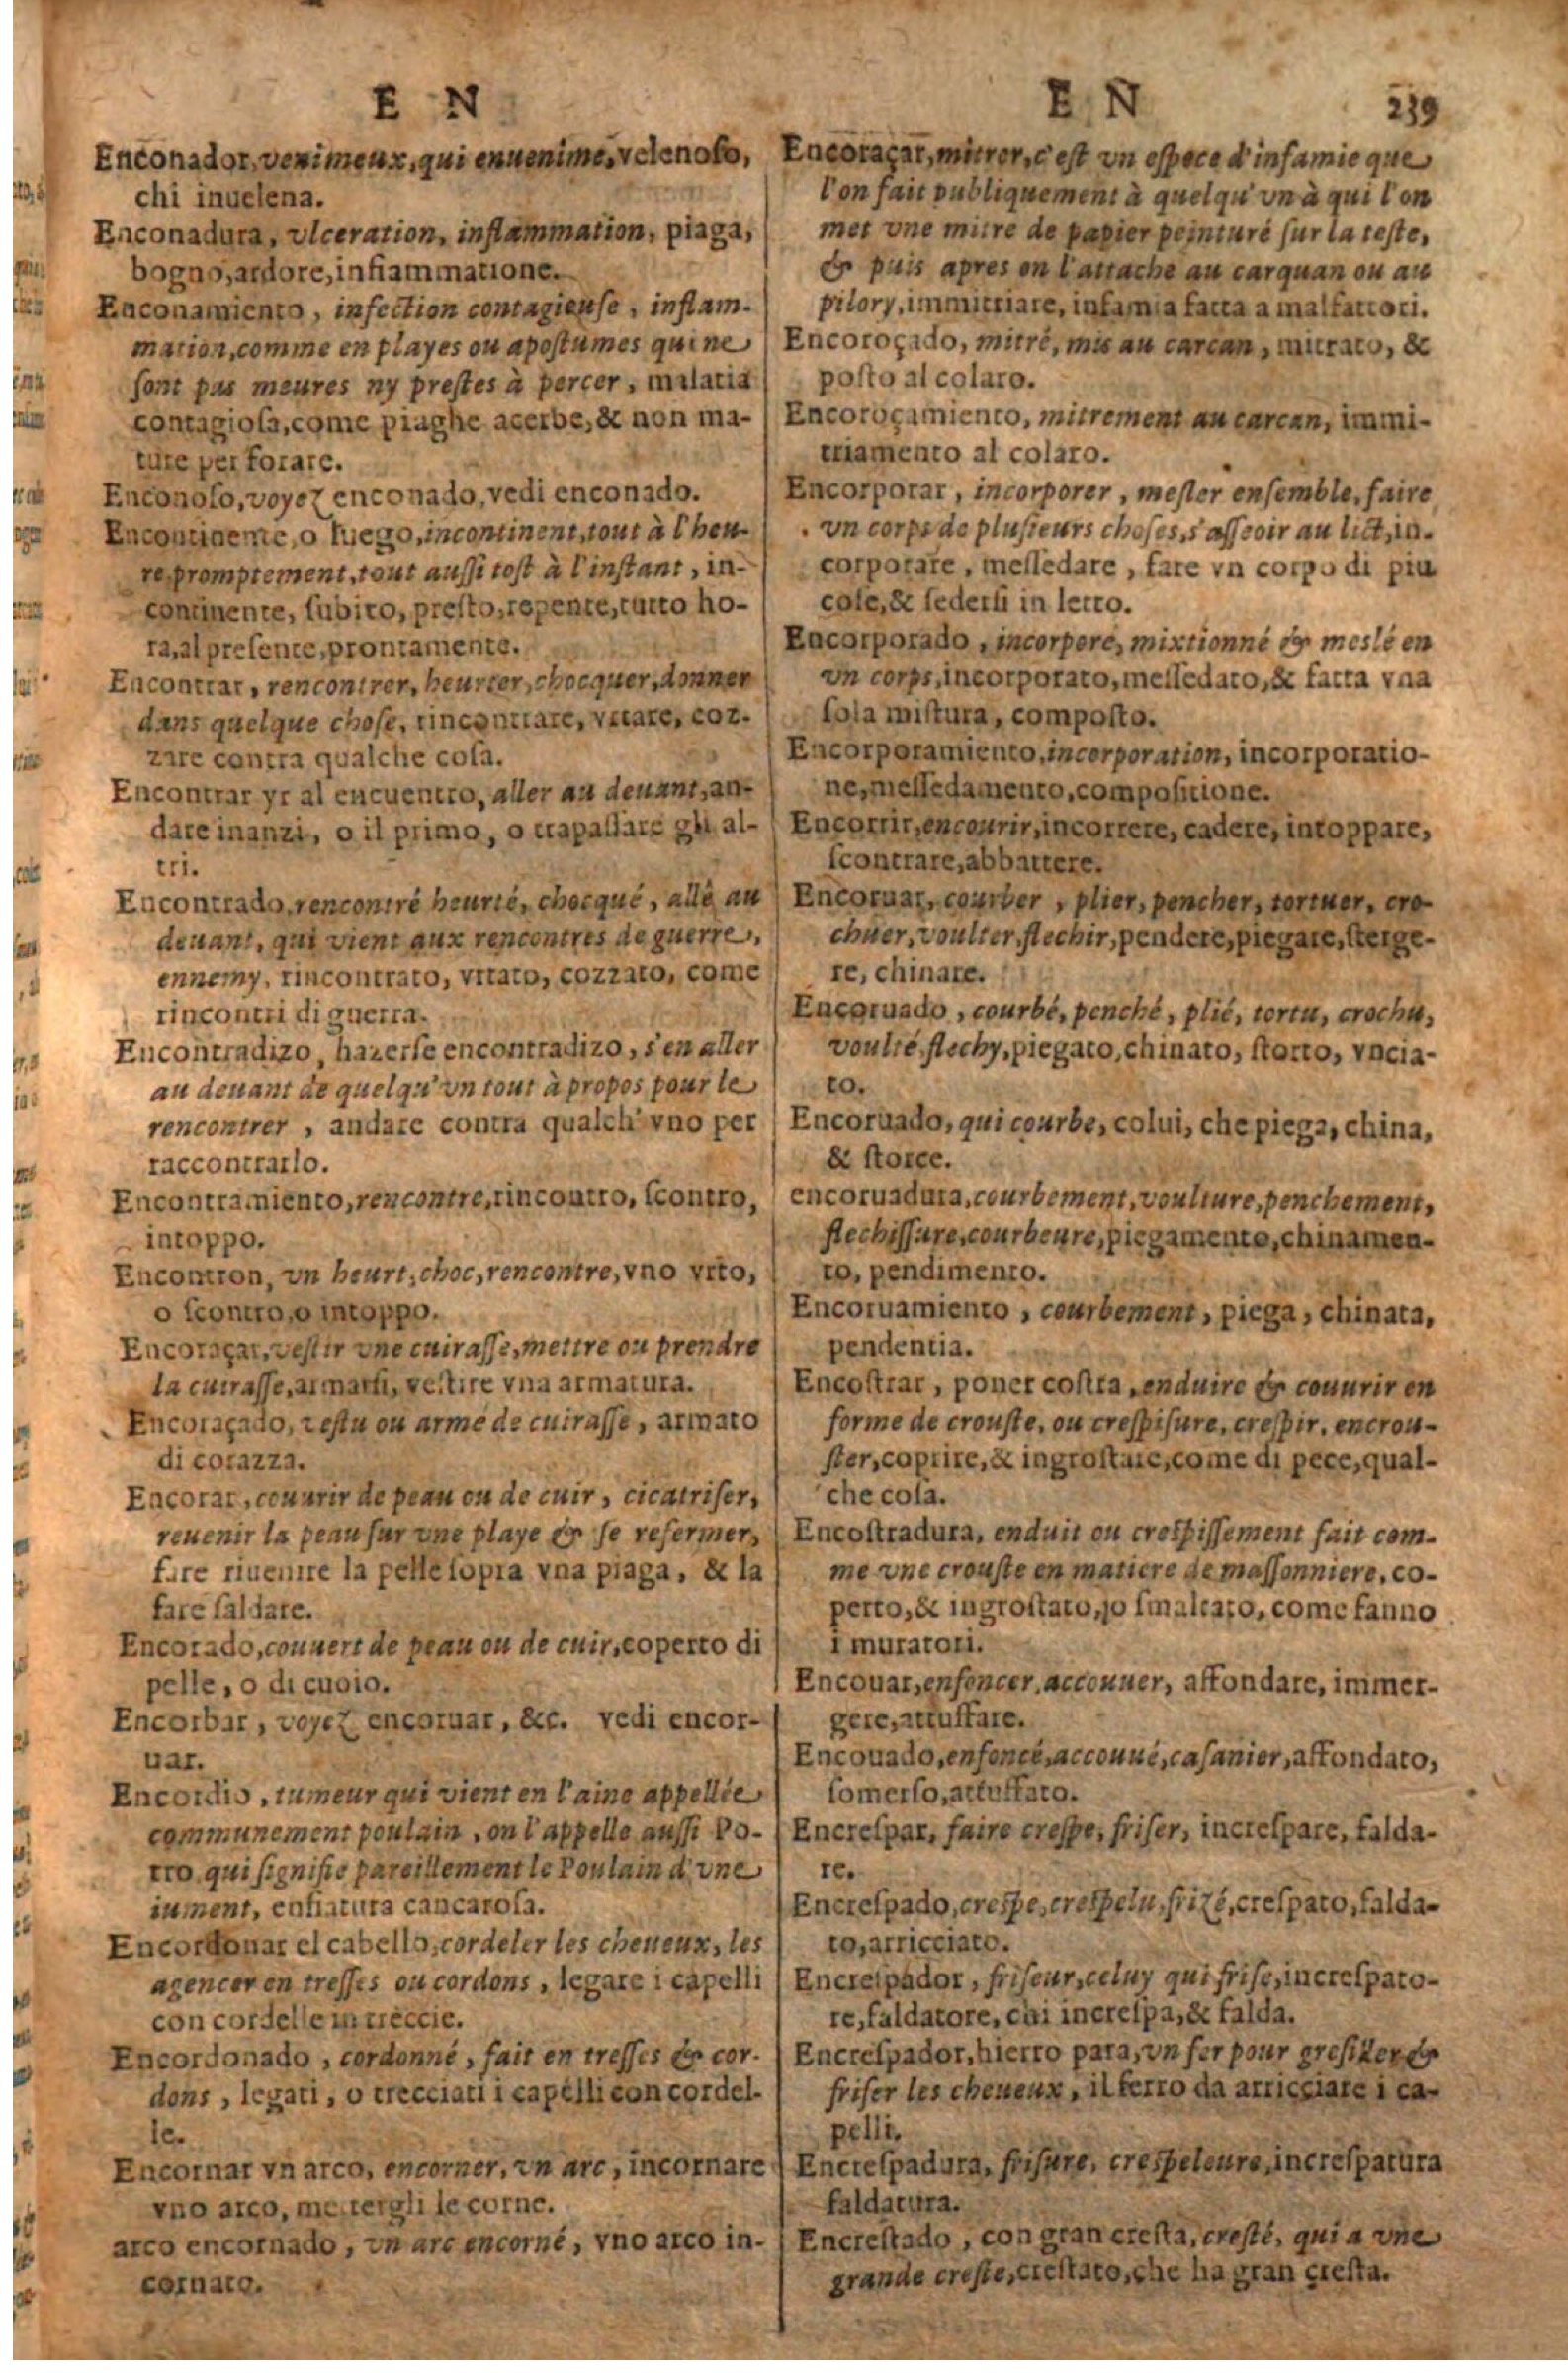 E N
Enconador, venimeux, qui enuenime, velenoſo,
chi inuelena.
Enconadura, vlceration, inflammation, piaga,
bogno, ardore, infiammatione.
Enconamiento, infection contagieuſe, inflam-
mation, comme en playes ou apoſtumes qui ne
ſont pas meures ny preſtes à percer, malatia
contagioſa, come piaghe acerbe, & non ma-
ture per forare.
Enconoſo, voyez enconado, vedi enconado.
Encontinente, o luego, incontinent, tout à l'heu-
re, promptement, tout auſſi toſt à l'inſtant, in-
continente, ſubito, preſto, repente, tutto ho-
ra, al preſente, prontamente.
Encontrar, rencontrer, heurter, chocquer, donner
dans quelque choſe, rincontrare, vrtare, coz-
zare contra qualche coſa.
Encontrar yr al encuentro, aller au deuant, an-
dare inanzi, o il primo, o trapaſſare gli al-
tri.
Encontrado, rencontré heurté, chocqué, allé au
deuant, qui vient aux rencontres de guerre,
ennemy, rincontrato, vrtato, cozzato, come
rincontri di guerra.
Encontradizo, hazerſe encontradizo, s'en aller
au deuant de quelqu'vn tout à propos pour le
rencontrer, andare contra qualch'vno per
raccontrarlo.
Encontramiento, rencontre, rincontro, ſcontro,
intoppo.
Encontron, vn heurt, choc, rencontre, vno vrto,
o ſcontro, o intoppo.
Encoraçar, veſtir vne cuiraſſe, mettre ou prendre
la cuiraſſe, armarſi, veſtire vna armatura.
Encoraçado, veſtu ou armé de cuiraſſe, armato
di corazza.
Encorar, couurir de peau ou de cuir, cicatriſer,
reuenir la peau ſur vne playe & ſe refermer,
fare riuenire la pelle ſopra vna piaga, & la
fare ſaldare.
Encorado, couuert de peau ou de cuir, coperto di
pelle, o di cuoio.
Encorbar, voyez encoruar, &c. vedi encor-
uar.
Encordio, tumeur qui vient en l'aine appellée
communement poulain, on l'appelle auſſi Po-
tro qui ſignifie pareillement le Poulain d'vne
iument, enfiatura cancaroſa.
Encordonar el cabello, cordeler les cheueux, les
agencer en treſſes ou cordons, legare i capelli
con cordelle in treccie.
Encordonado, cordonné, fait en treſſes & cor-
dons, legati, o trecciati i capelli con cordel-
le.
Encornar vn arco, encorner, vn arc, incornare
vno arco, mettergli le corne.
arco encornado, vn arc encorné, vno arco in-
cornato.
E N 239
Encoraçar, mitrer, c'eſt vn eſpece d'infamie que
l'on fait publiquement à quelqu'vn à qui l'on
met vne mitre de papier peinturé ſur la teſte,
& puis apres on l'attache au carquan ou au
pilory, immitriare, infamia fatta a malfattori.
Encoroçado, mitré, mis au carcan, mitrato, &
poſto al colaro.
Encoroçamiento, mitrement au carcan, immi-
triamento al colaro.
Encorporar, incorporer, meſler enſemble, faire
vn corps de pluſieurs choſes, s'aſſeoir au lict, in-
corporare, meſſedare, fare vn corpo di piu
coſe, & ſederſi in letto.
Encorporado, incorporé, mixtionné & meslé en
vn corps, incorporato, meſſedato, & fatta vna
ſola miſtura, compoſto.
Encorporamiento, incorporation, incorporatio-
ne, meſſedamento, compoſitione.
Encorrir, encourir, incorrere, cadere, intoppare,
ſcontrare, abbattere.
Encoruar, courber, plier, pencher, tortuer, cro-
chuer, voulter, flechir, pendere, piegare, ſterge-
re, chinare.
Encoruado, courbé, penché, plié, tortu, crochu,
voulté, flechy, piegato, chinato, ſtorto, vncia-
to.
Encoruado, qui courbe, colui, che piega, china,
& ſtorce.
encoruadura, courbement, voulture, penchement,
flechiſſure, courbeure, piegamento, chinamen-
to, pendimento.
Encoruamiento, courbement, piega, chinata,
pendentia.
Encoſtrar, poner coſtra, enduire & couurir en
forme de crouſte, ou creſpiſure, creſpir, encrou-
ſter, coprire, & ingroſtare, come di pece, qual-
che coſa.
Encoſtradura, enduit ou creſpiſſement fait com-
me vne crouſte en matiere de maſſonniere, co-
perto, & ingroſtato, jo ſmaltato, come fanno
i muratori.
Encouar, enfoncer, accouuer, affondare, immer-
gere, attuffare.
Encouado, enfoncé, accouué, caſanier, affondato,
ſomerſo, attuffato.
Encreſpar, faire creſpe, friſer, increſpare, falda-
re.
Encreſpado, creſpe, creſpelu, frizé, creſpato, falda-
to, arricciato.
Encreſpador, friſeur, celuy qui friſe, increſpato-
re, faldatore, chi increſpa, & falda.
Encreſpador, hierro para, vn fer pour greſiller &
friſer les cheueux, il ferro da arricciare i ca-
pelli.
Encreſpadura, friſure, creſpeleure, increſpatura
faldatura.
Encreſtado, con gran creſta, creſté, qui a vne
grande creſte, creſtato, che ha gran creſta.